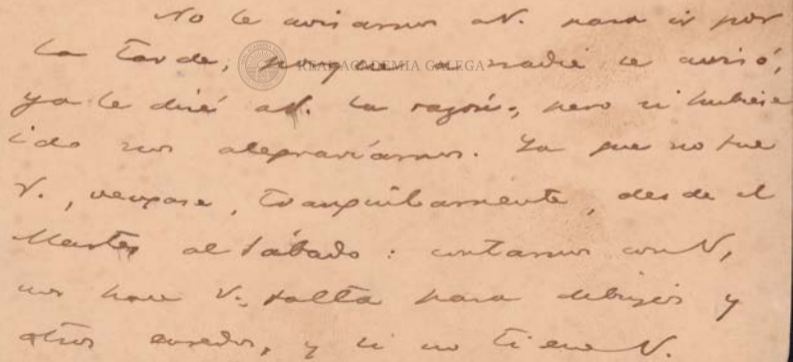 No le avisamos a V. para ir por
la tarde, porque a nadie se avisó,
ya le diré a V. la razón, pero si hubiese
ido nos alegraríamos. Ya que no fue
V., vengase, tranquilamente, desde el
Martes al Sábado: contamos con V,
nos hace V. falta para dibujos y
otros enredos, y si no tiene V.
REAL ACADEMIA GALEGA